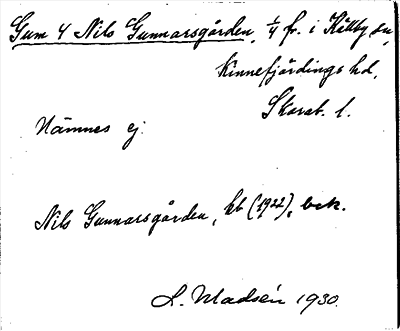 Gum 4 Nils Gunnarsgården, 1/4 fr. i Källby sn,
Kinnefjärdings hd,
Skarab. l.
Nämnes ej.
Nils Gunnarsgården, hb (1922), bek.
L. Madsén 1930.